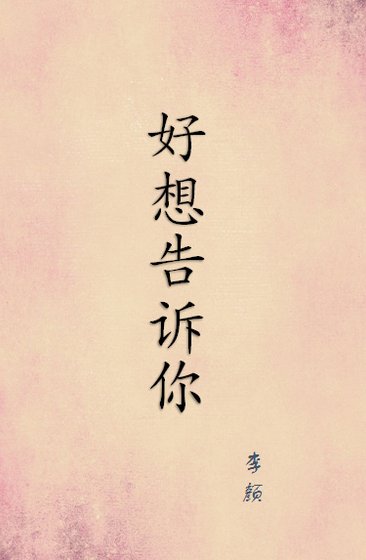 好想告诉你
李颜